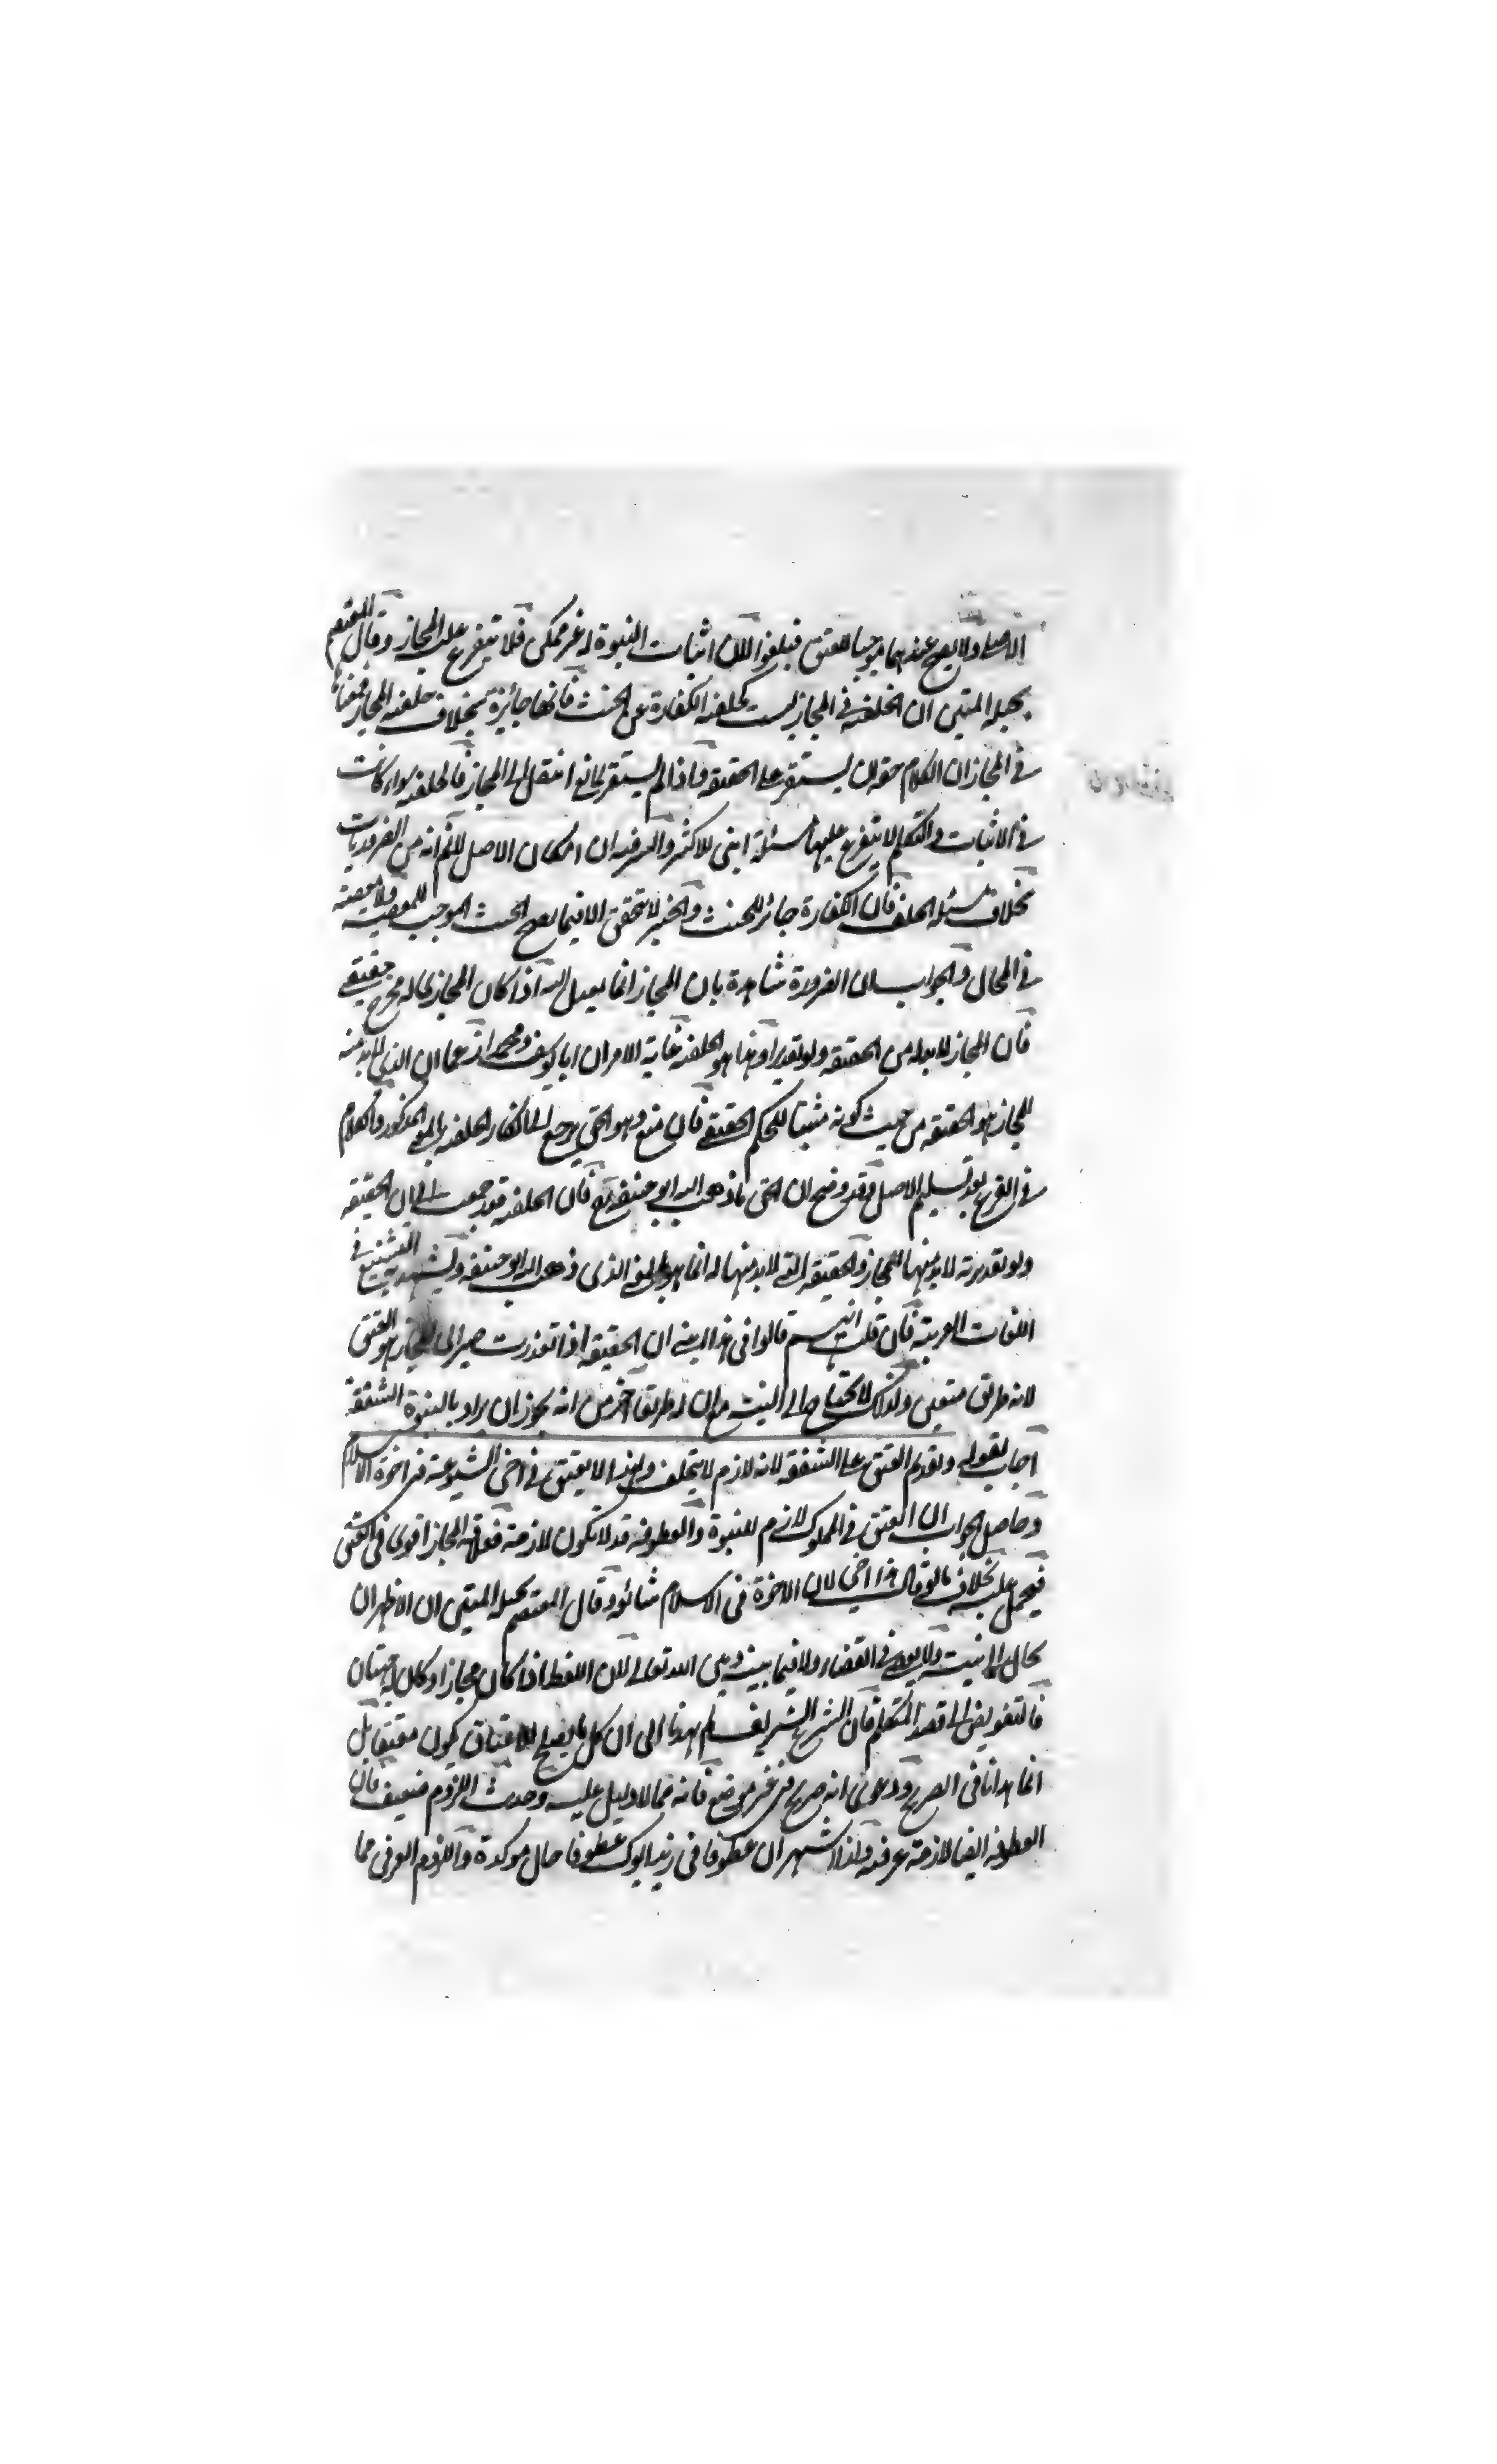 الاصل ولا يصح عندهما موجبا للعتق فيلغوا لان اثبات البنوة له غير ممكن فلا يتفرع عليه المجاز وقال المعتصم
بحبله المتين ان الخلفية في المجاز ليست كخلفية الكفارة عن الحنث فانها جائزة بخلاف خلفية المجاز فمعناها
في المجاز ان الكلام حقه ان يستقر على الحقيقة واذا لم يستقر لمانع انتقل الى المجاز فالخلفية سواء كانت
في الاثبات والتكلم لا يتفرع عليها مسئلة ابني للاكثر والسر فيه ان امكان الاصل لا نم انه من الضروريات
بخلاف مسئلة الحلف فان الكفارة جائز للحنث والجبر لا يتحقق الا فيما يصح الحنث الموجب للمعصية ولا معصية
في المحال والجواب ان الضرورة شاهدة بان المجاز انما يعدل اليه اذا كان المجاز حاله مخرج حقيقي
فان المجاز لابد له من الحقيقة ولو تقديرا وهذا هو الخلفية غاية الامر ان ابا يوسف ومحمدا زعما ان الذي لابد منه
للمجاز هو الحقيقة من حيث كونه مثبتا للحكم الحقيقي فان منع وهو الحق يرجع الى انكار الخلفية بالمعنى المذكور والكلام
في الفرع بعد تسليم الاصل وقد وضح ان الحق ما ذهب اليه ابو حنيفة رح فان الخلفية قد رجعت الى ان الحقيقة
ولو تقديرية لابد منها للمجاز والحقيقة التي لابد منها له انما هو بالمعنى الذي ذهب اليه ابو حنيفة وليشهد به التشنيع في
اللغات العربية فان قلت انهم قالوا في هذا ابني ان الحقيقة اذا تعذرت صير الى المجاز وهو العتق
لانه طريق متعين ولذلك لا يحتاج الى النية مع ان له طريقا اخر من انه يجوز ان يراد بالبنوة الشفقة
اجاب بقوله وتقديم العتق على الشفقة لانه لازم لا يتخلف ولهذا لا يعتق في اخي لشيوعه في اخوة الاسلام
وحاصل الجواب ان العتق في المملوك لازم للبنوة والعطوفة قد لا تكون لازمة فعلاقة المجاز اقوى في العتق
فيحمل عليه بخلاف ما لو قال هذا اخي لان الاخوة في الاسلام شائع وقال المعتصم بحبله المتين ان الاظهر ان
يحال الى النية ولا يعتق في القضاء ولا فيما بينه وبين الله تعالى لان اللفظ اذا كان مجازا وكان له جهتان
فالتفويض الى قصد المتكلم فان الشرع الشريف لم يهدنا الى ان كل ما يصلح للاعتاق يكون معتقا بل
انما هدانا في الصريح ودعوى انه صريح في غير موضع فانه مما لا دليل عليه وحديث اللزوم ضعيف فان
العطوفة ايضا لازمة عرفية ولذا اشتهر ان عطوفا في زيد ابوك عطوفا حال موكدة واللزوم العرفي مما